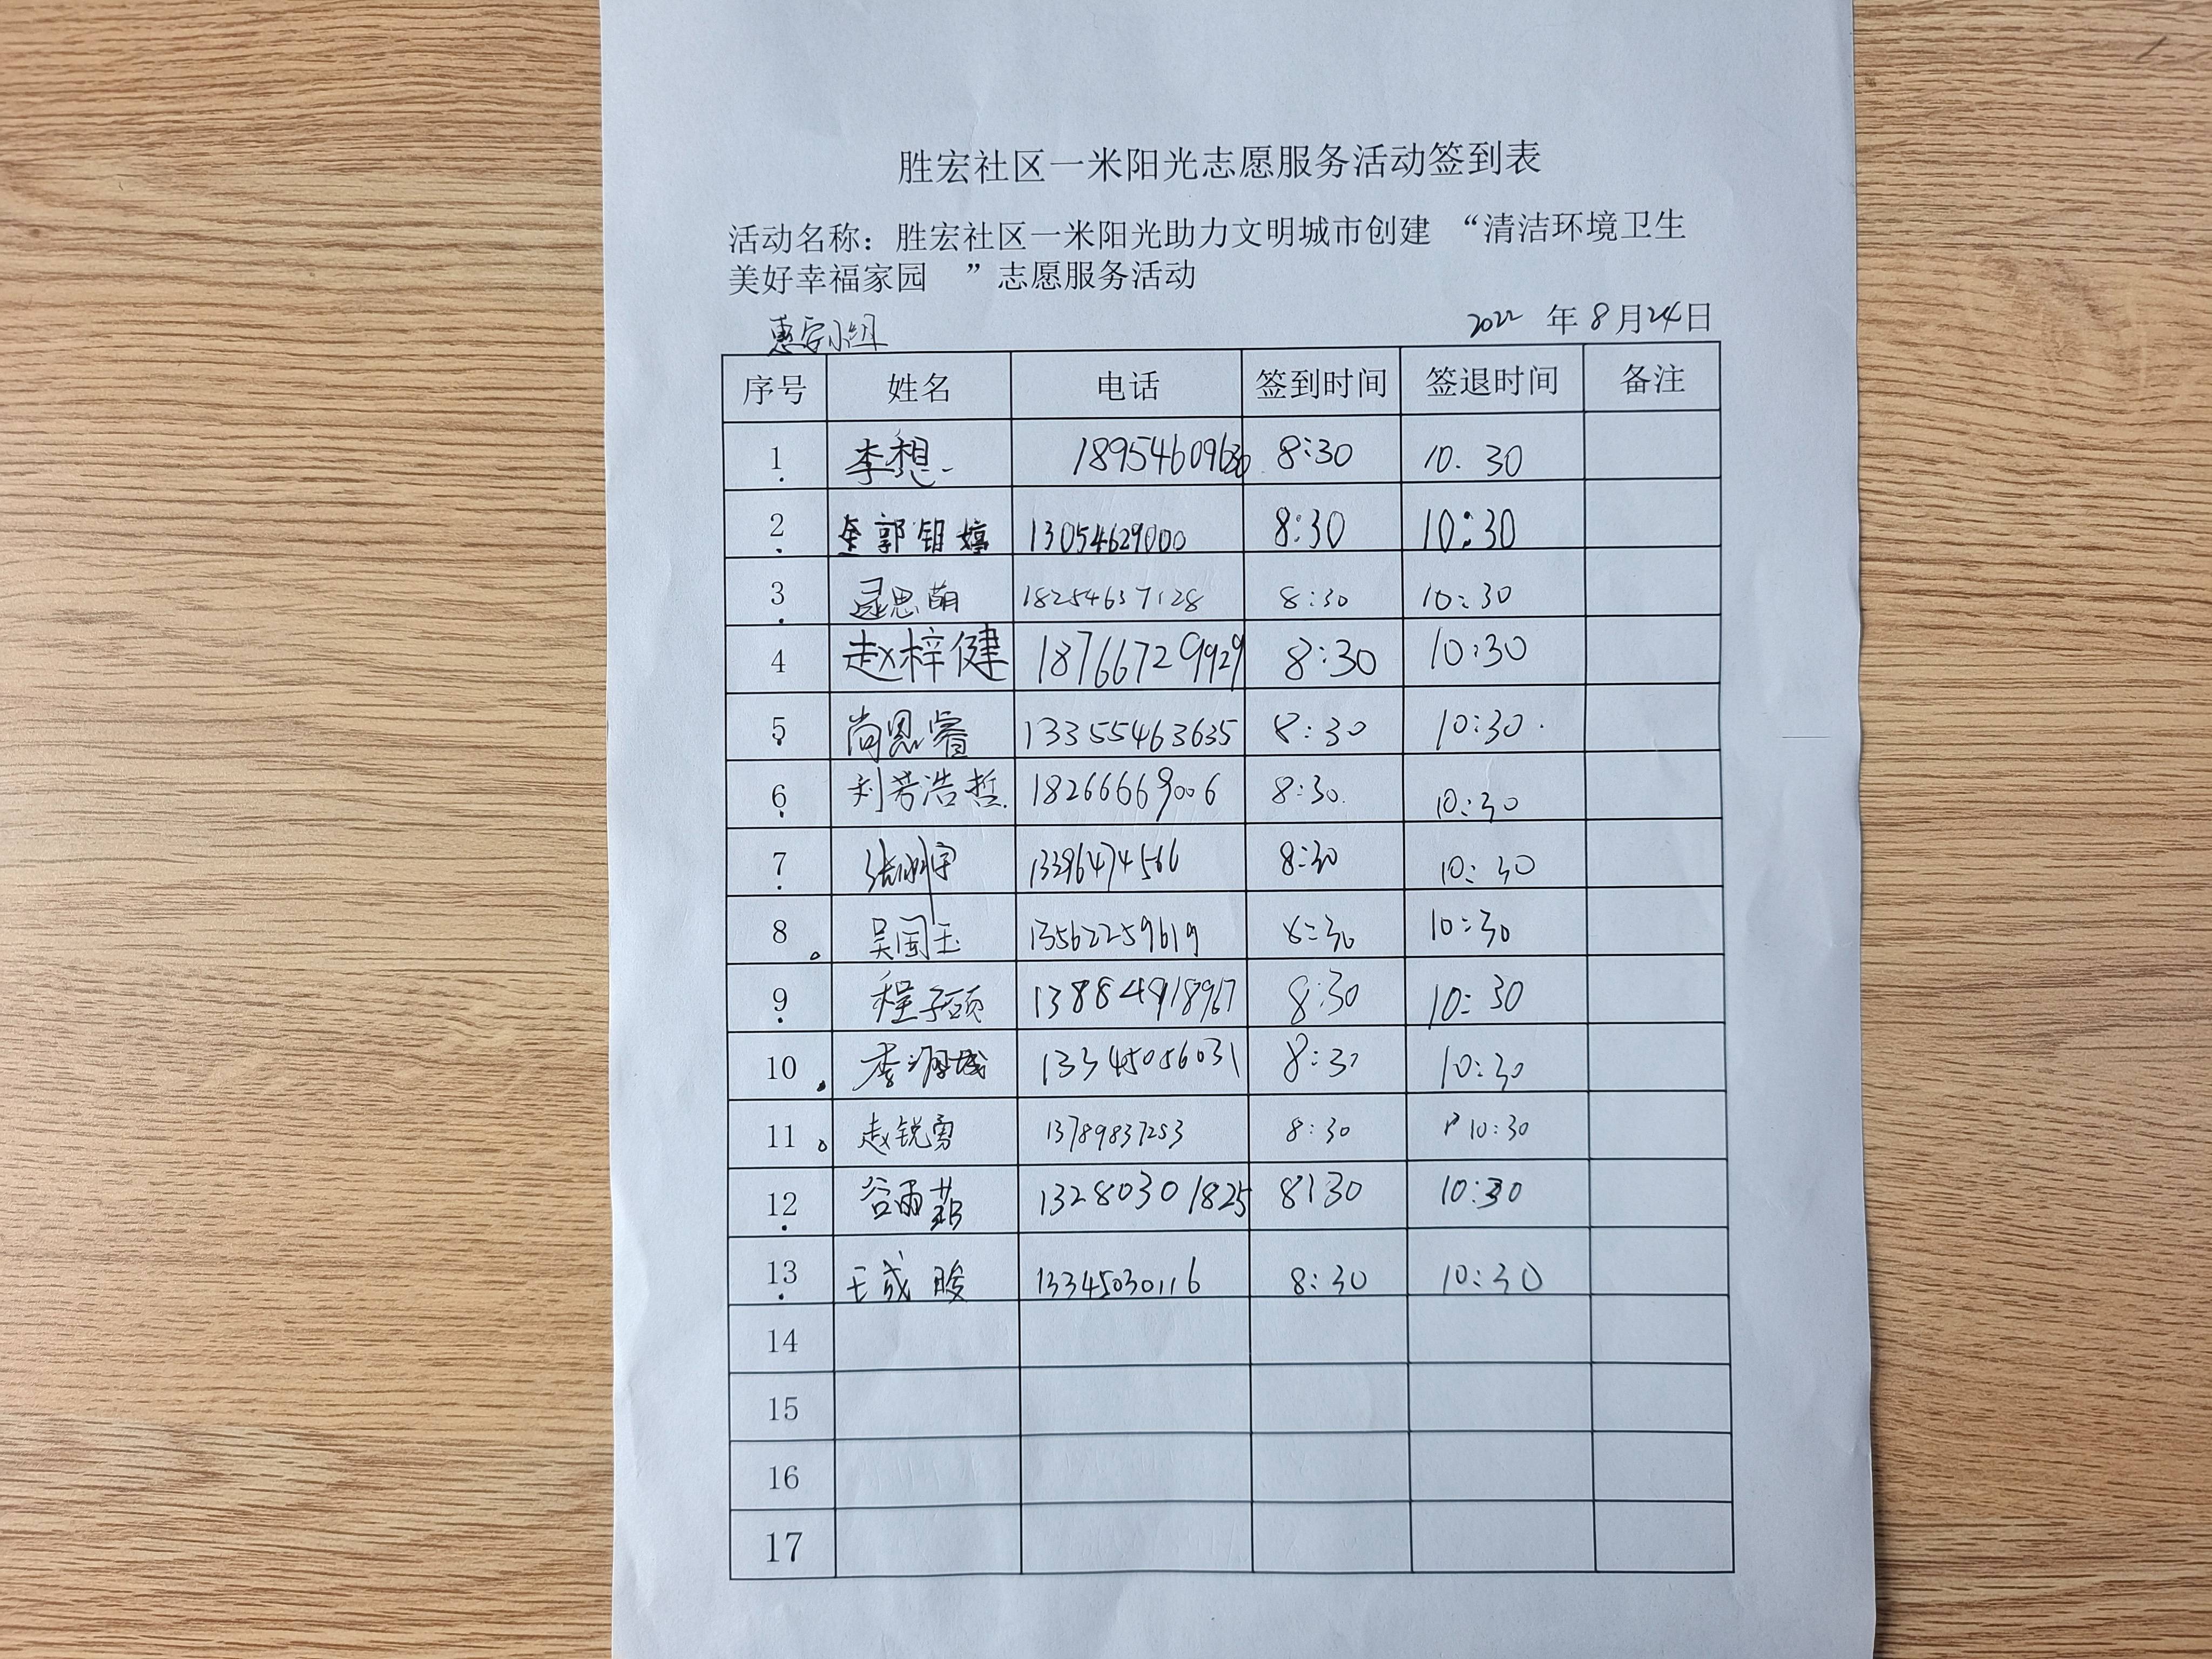 胜宏社区一米阳光志愿服务活动签到表
活动名称：胜宏社区一米阳光助力文明城市创建 “清洁环境卫生
美好幸福家园 ”志愿服务活动
惠安小组 2022 年 8 月 24 日
序号 姓名 电话 签到时间 签退时间 备注
1 李想 8:30 10.30
2 郭钼婷 13054629000 8:30 10:30
3 思萌 18254637128 8:30 10:30
4 赵梓健 18766729929 8:30 10:30
5 尚恩睿 13355463635 8:30 10:30
6 刘芳浩哲 18266669006 8:30 10:30
7 13396474566 8:30 10:30
8 吴国玉 13562259619 8:30 10:30
9 程子硕 13884918967 8:30 10:30
10 李 13345056031 8:30 10:30
11 赵锐勇 13789837253 8:30 10:30
12 谷雨 13280301825 8:30 10:30
13 王成骏 13345030116 8:30 10:30
14
15
16
17